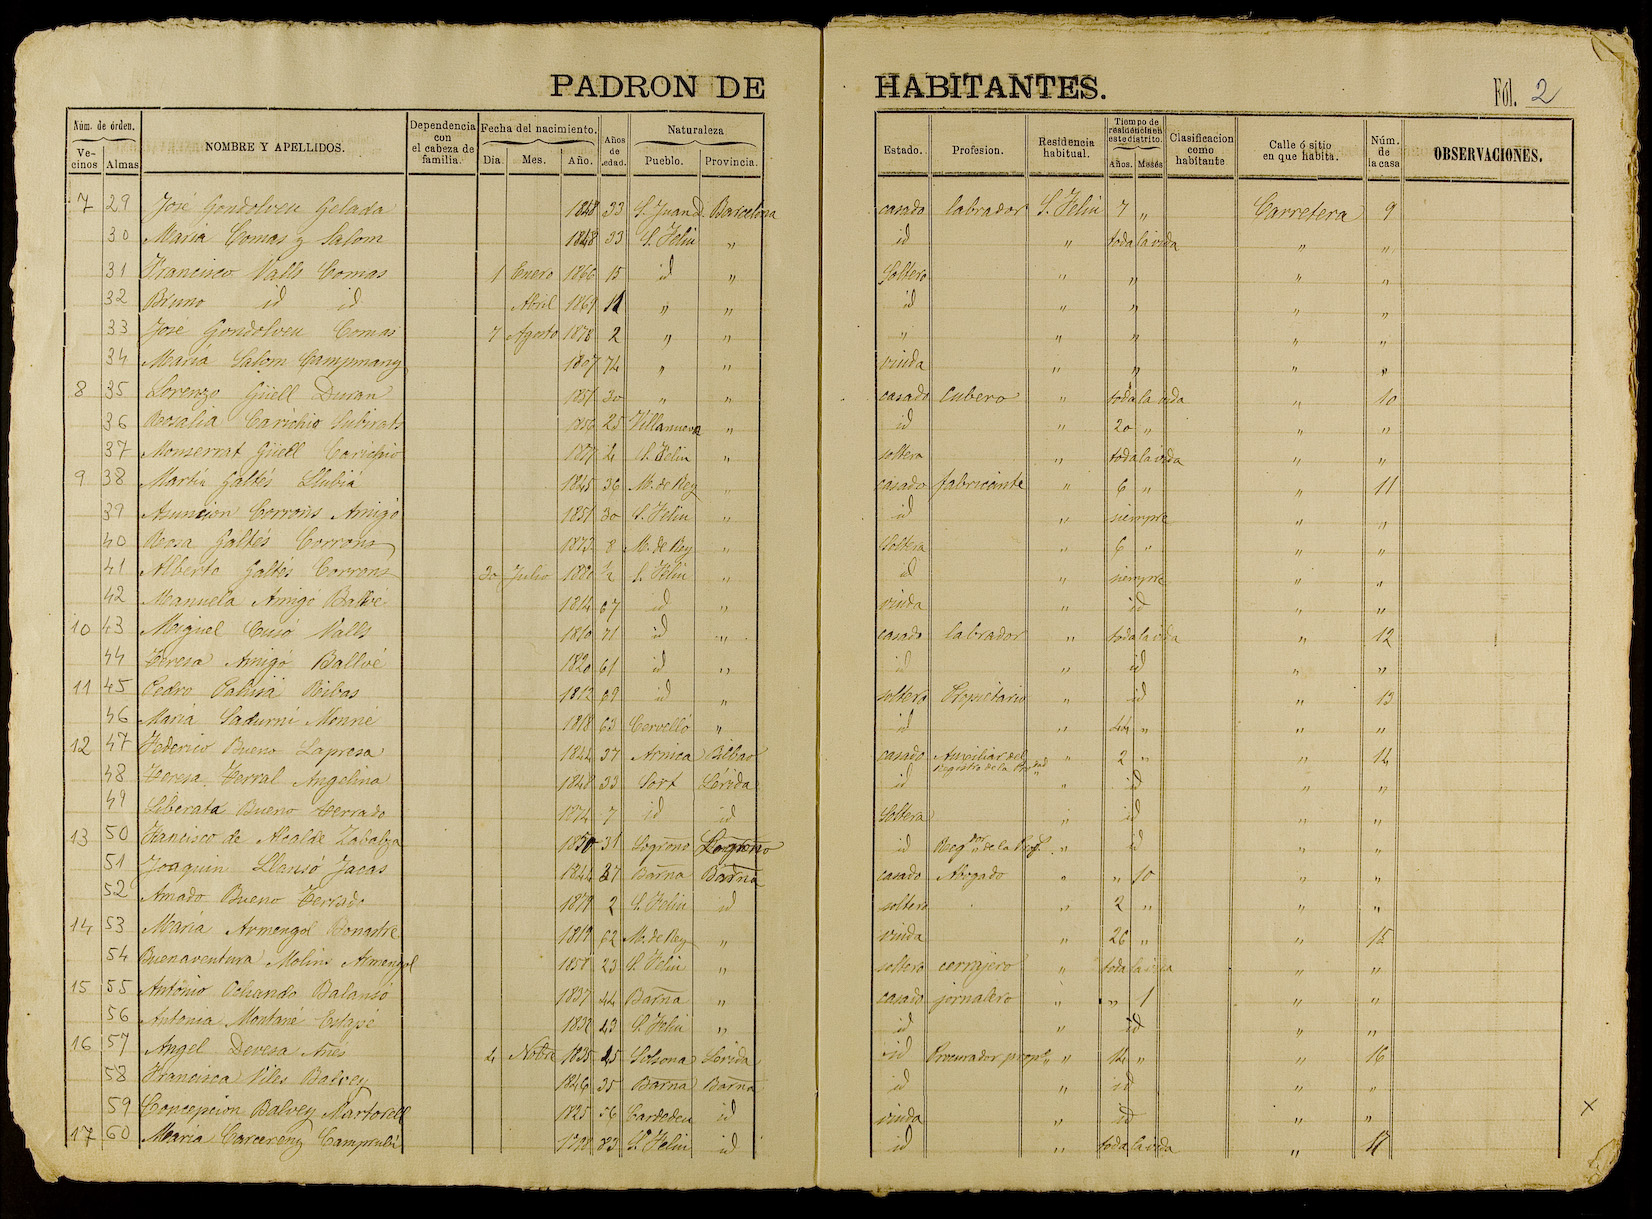 PADRON DE HABITANTES.
Fól. 2
Núm. de órden. Vecinos Almas NOMBRE Y APELLIDOS. Dependencia con el cabeza de familia. Fecha del nacimiento. Dia. Mes. Año. Años de edad. Naturaleza Pueblo. Provincia. Estado. Profesion. Residencia habitual. Tiempo de residencia en este distrito. Años. Meses Clasificacion como habitante Calle ó sitio en que habita. Núm. de la casa OBSERVACIONES.
7 29 José Gondolveu Gelada 1848 33 S. Juan D. Barcelona casado labrador S. Feliu 7 „ Carretera 9
30 Maria Comas y Salom 1848 33 S. Feliu „ id „ toda la vida „ „
31 Francisco Valls Comas 1 Enero 1866 15 id „ Soltero „ „ „ „
32 Bruno id id Abril 1869 11 „ „ id „ „ „ „
33 José Gondolveu Comas 7 Agosto 1878 2 „ „ „ „ „ „ „
34 Maria Salom Campmany 1807 74 „ „ viuda „ „ „ „
8 35 Lorenzo Güell Duran 1851 30 „ „ casado Cubero „ toda la vida „ 10
36 Rosalia Carichio Subirats 1856 25 Villanueva „ id „ 20 „ „ „
37 Monserrat Güell Carichio S. Feliu „ soltera „ toda la vida „ „
9 38 Martin Galtés Llubiá 1845 36 M. de Rey „ casado fabricante „ 6 „ „ 11
39 Asuncion Corrons Amigó 1851 30 S. Feliu „ id „ siempre „ „
40 Rosa Galtés Corrons 1873 8 M. de Rey „ Soltera „ 6 „ „ „
41 Alberto Galtés Corrons 30 Julio 1880 ½ S. Feliu „ id „ siempre „ „
42 Manuela Amigó Ballvé 1814 67 id „ viuda „ id „ „
10 43 Miguel Cusó Valls 1810 71 id „ casado labrador „ toda la vida „ 12
44 Teresa Amigó Ballvé 1820 61 id „ id „ id „ „
11 45 Pedro Pahisa Ribas 1812 69 id „ soltero Propietario „ id „ 13
46 Maria Sadurní Monné 1818 63 Cervelló „ id „ 44 „ „ „
12 47 Federico Bueno Lapresa 1844 37 Arnica Bilbao casado Auxiliar del registro de la Prop.dad „ 2 „ „ 14
48 Teresa Terral Angelina 1848 33 Sort Lérida id „ id „ „
49 Liberata Bueno Terrado 1874 7 id id Soltera „ id „ „
13 50 Francisco de Alcalde Zabalza 1850 31 Logroño Logroño id Reg.dor de la Prop. „ id „ „
51 Joaquin Llansó Jacas 1844 37 Barna Barna casado Abogado „ „ 10 „ „
52 Amado Bueno Terrado 1879 2 S. Feliu id soltero „ 2 „ „ „
14 53 Maria Armengol Bonastre 1819 62 M. de Rey „ viuda „ 26 „ „ 15
54 Buenaventura Molins Armengol 1858 23 S. Feliu „ soltero cerrajero „ toda la vida „ „
15 55 Antonio Ochando Balansó 1837 44 Barna „ casado jornalero „ „ 1 „ „
56 Antonia Montané Estapé 1838 43 S. Feliu „ id „ id „ „
16 57 Angel Devesa Anés 4 Nobre 1835 45 Solsona Lerida id Procurador „ 14 „ „ 16
58 Francisca Viles Balvey 1846 35 Barna Barna id „ id „ „
59 Concepcion Balvey Martorell 1825 56 Cardedeu id viuda „ id „ „
17 60 Maria Carcereny Camprubí 83 S. Feliu id id „ toda la vida „ 17